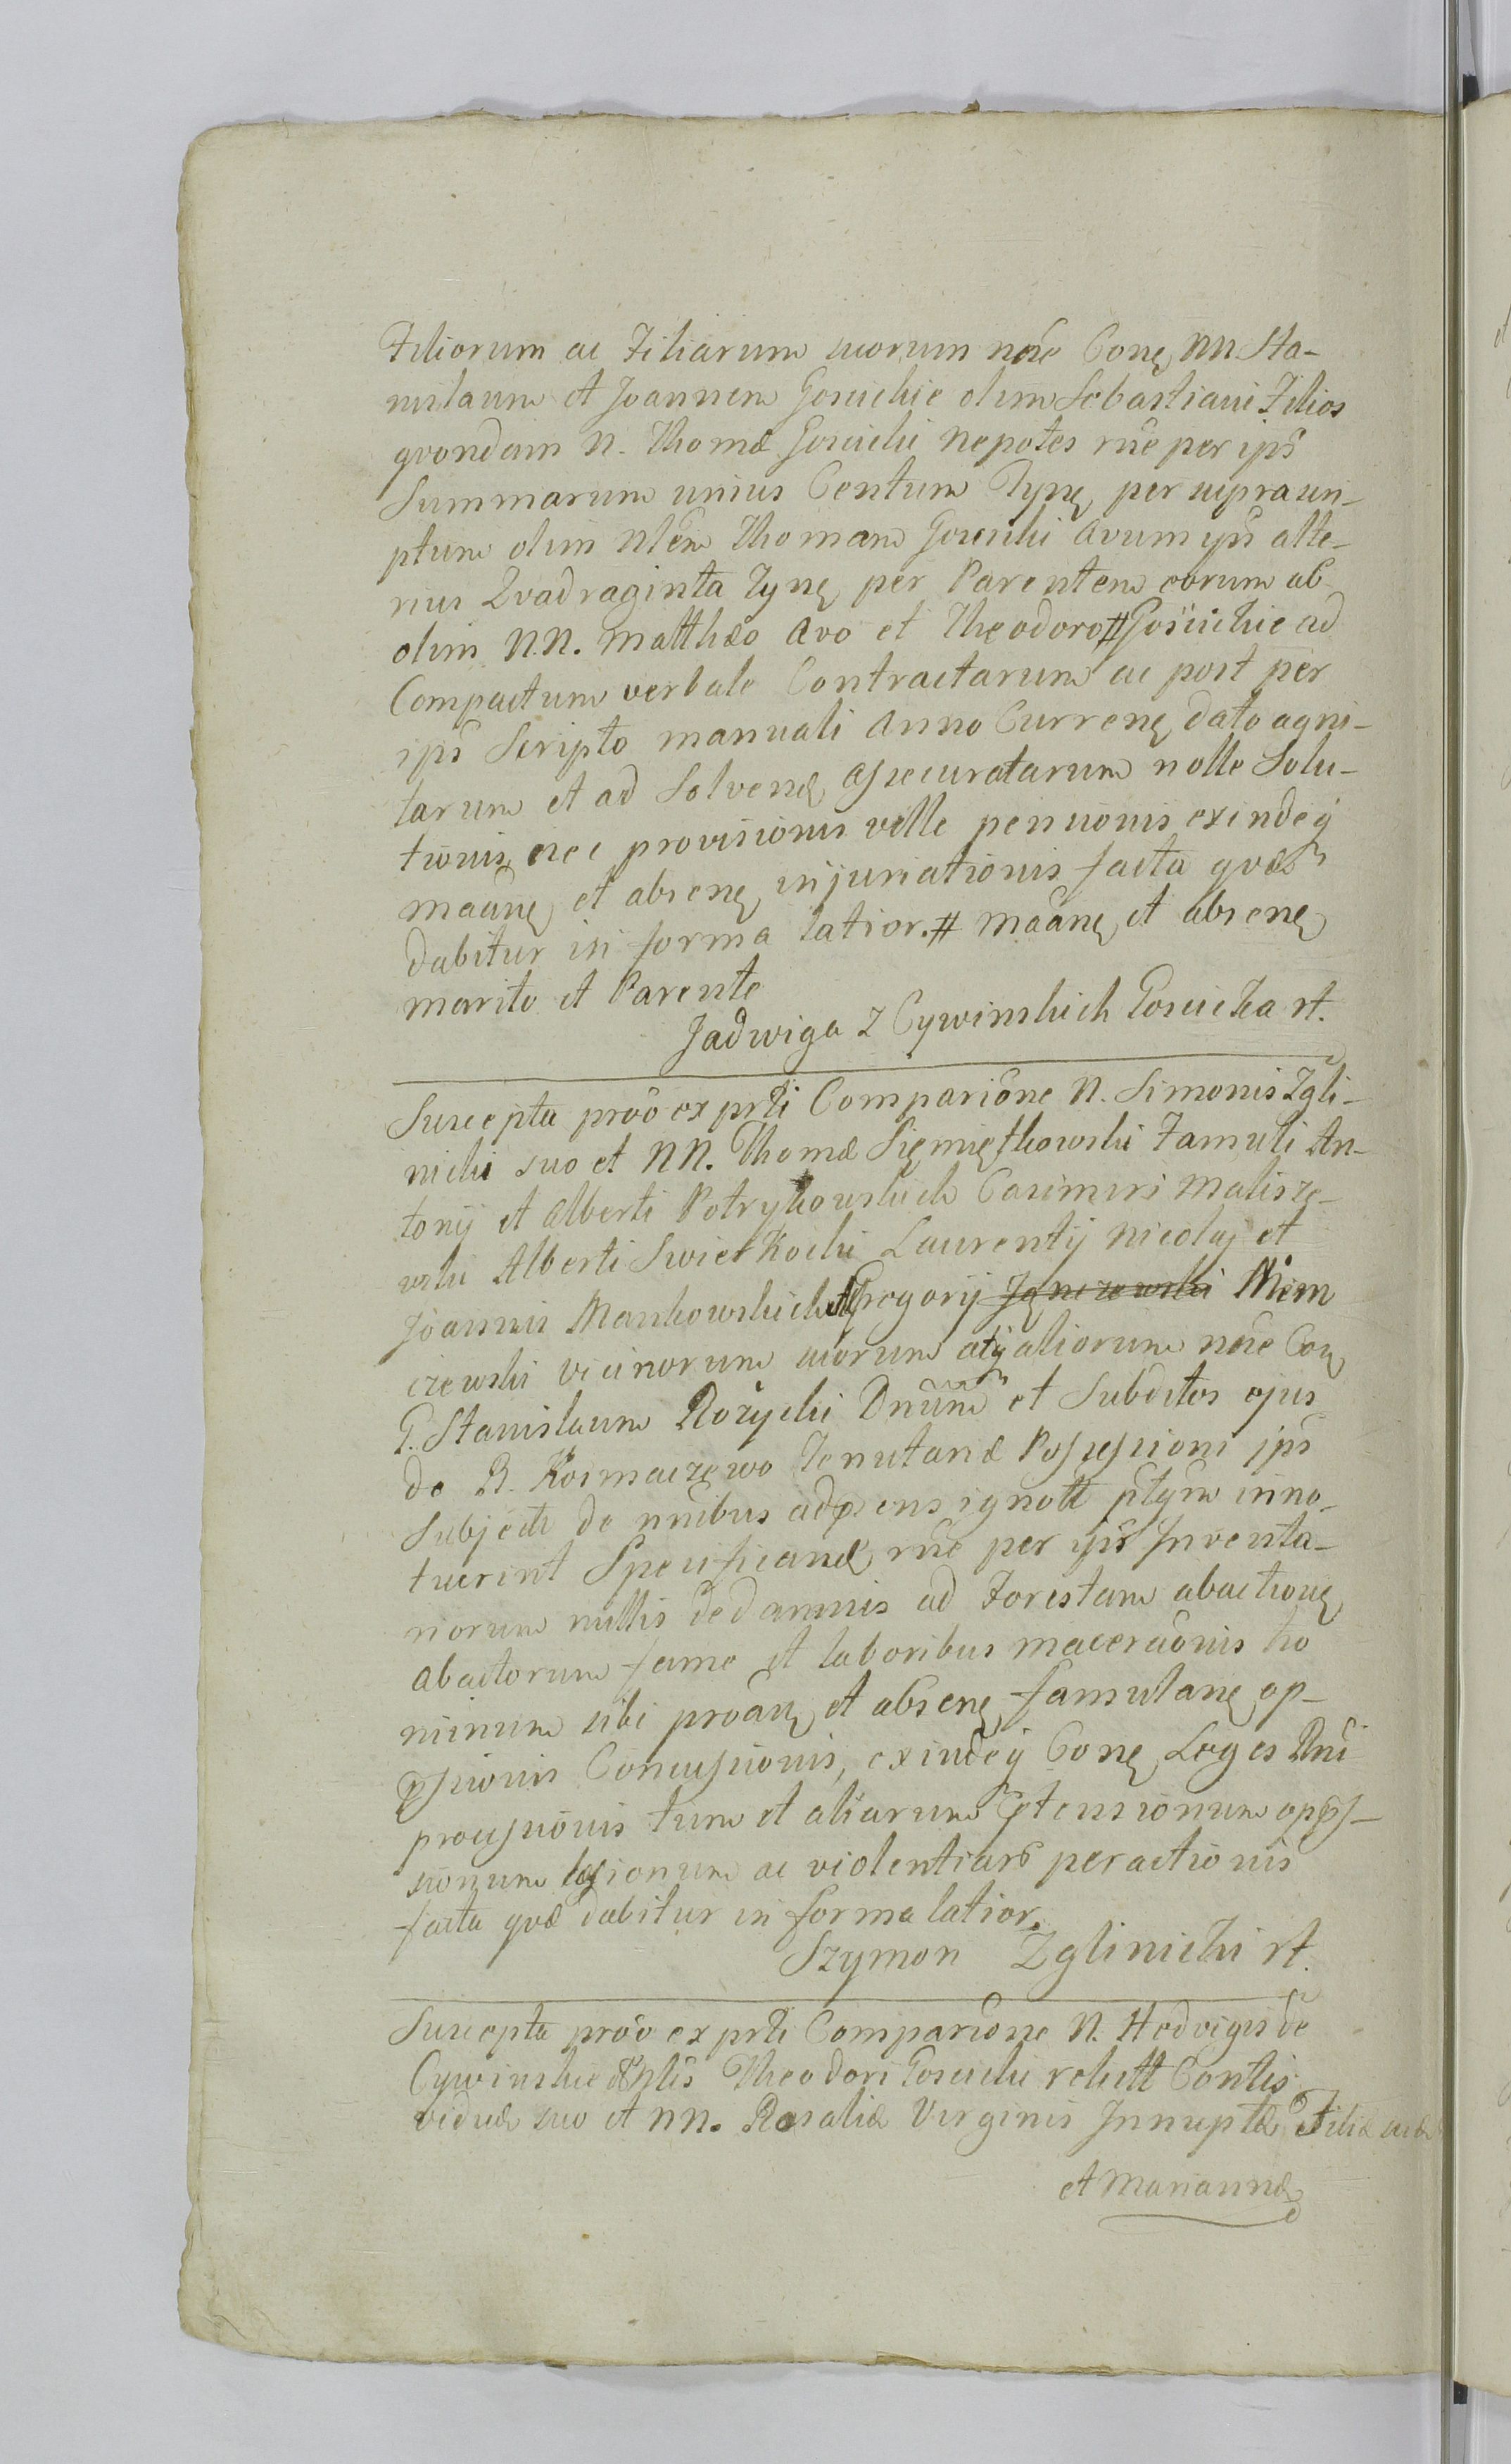 Filiorum ac Filiarum suorum nõie Conę NN Sta-
nislaum et Joannem Goscickie olim Sebastiani Filios
qvondam N. Thomæ Goscicki Nepotes rñe per ips
Summarum unius Centum Tynę per suprascri-
ptum olim Nlem Thomam Goscicki Avum ips alte-
rius Qvadraginta Tynę per Parentem eorum ab
olim N.N. Matthæo Avo et Theodoro # Goscickie ad
Compactum verbale Contractarum ac post per
ips Scripto manuali Anno Currenę dato agni-
tarum et ad Solvenđ assecuratarum nolle Solu-
tionis nec provisionis velle pensionis exindeq
maãnę et absenę injuriationis facta qvæ
dabitur in forma latior. # maãnę et absenę
marito et Parente
Jadwiga z Cywinskich Goscicka rt.
Suscepta proõ ex prti Comparĩone N. Simonis Zgli-
nicki suo et NN. Thomæ Sięmiętkowski Famuli An-
tonij et Alberti Potrykowskich Casimiri Malisze-
wski Alberti Swietkoski Laurentij Nicolaj et
Joannis Mankowskich Gregorij Jęnczewski Niem
czewski vicinorum suorum atq aliorum nõie Con
G. Stanislaum Rożycki Dnũm et Subditos ejus
de B. Kosmaczewo Tenutariæ Possessioni ips
Subjecti de nnĩbus adpsens ignott ptym inno-
tuerint Specificanđ rñe per ips Inventa-
riorum nullis de damnis ad Forestam abactionę
abactorum fame et laboribus maceraõnis ho
minum sibi proãnę et absenę famulanę op-
pssionis Concussionis, exindeq Conę Leges Dni
processionis tum et aliarum Ptensionum oppss-
sionum læsionum ac violentiars peractionis
facta qvæ dabitur in forma latior.
Szymon Zglinicki rt.
Suscepta proõ ex prti Comparĩone N. Hedvigis de
Cywinskie Nlis Theodori Goscicki relictt Contlis
viduæ suo et NN. Rosaliæ Virginis Innuptæ Filiæ suæ
et Mariannæ